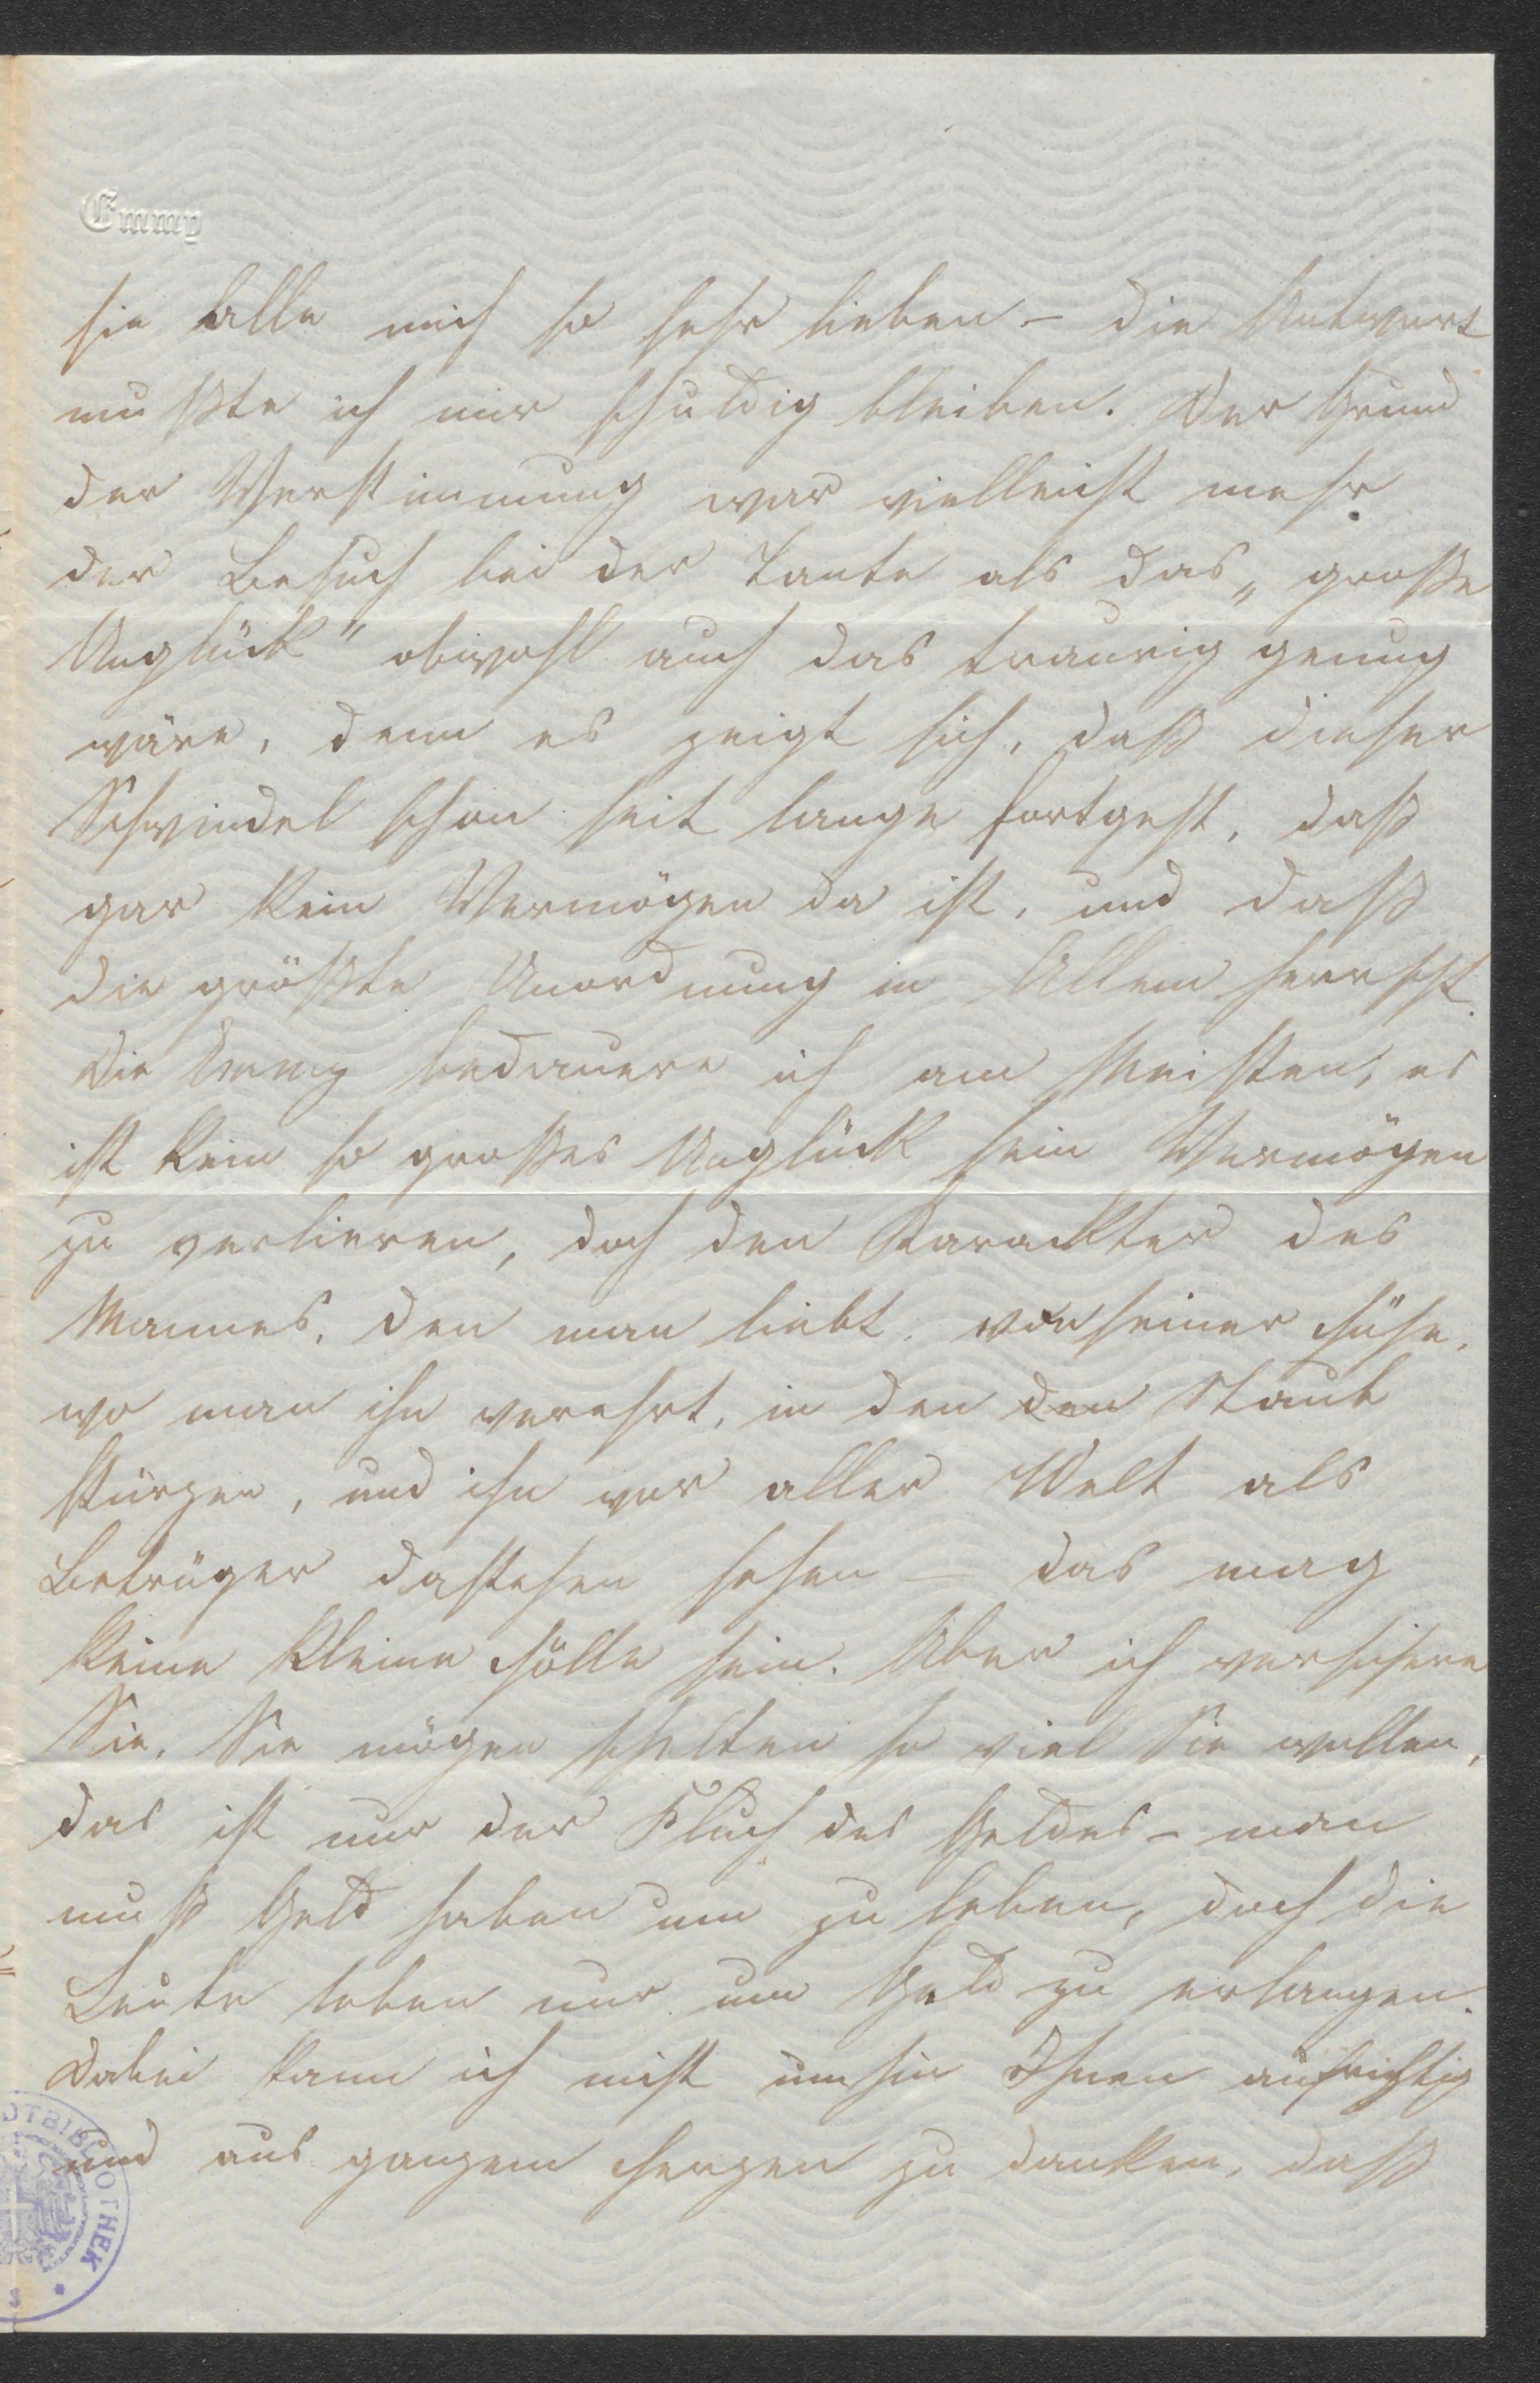 Emmy
sie Alle mich so sehr lieben – die Antwort
mußte ich mir schuldig bleiben. Der Grund
der Verstimmung war vielleicht mehr
der Besuch bei der Tante als das „große
Unglück" obwohl auch das traurig genug
wäre, denn es zeigt sich, daß dieser
Schwindel schon seit lange fortgeht, daß
gar kein Vermögen da ist, und daß
die größte Unordnung in Allem herrscht.
Die Emmy bedauere ich am Meisten, es
ist kein so großes Unglück sein Vermögen
zu verlieren, doch den Karackter des
Mannes, den man liebt von seiner Höhe,
wo man ihn verehrt, in den den Staub
stürzen, und ihn vor aller Welt als
Betrüger dastehen sehen – das mag
keine kleine Hölle sein. Aber ich versichere
Sie, Sie mögen schelten so viel Sie wollen,
das ist nur der Fluch des Geldes – man
muß Geld haben um zu leben, doch die
Leute leben nur um Geld zu erlangen.
Dabei kann ich nicht umhin Ihnen aufrichtig
und aus ganzem Herzen zu danken, daß
DTBIBLIOTHEK